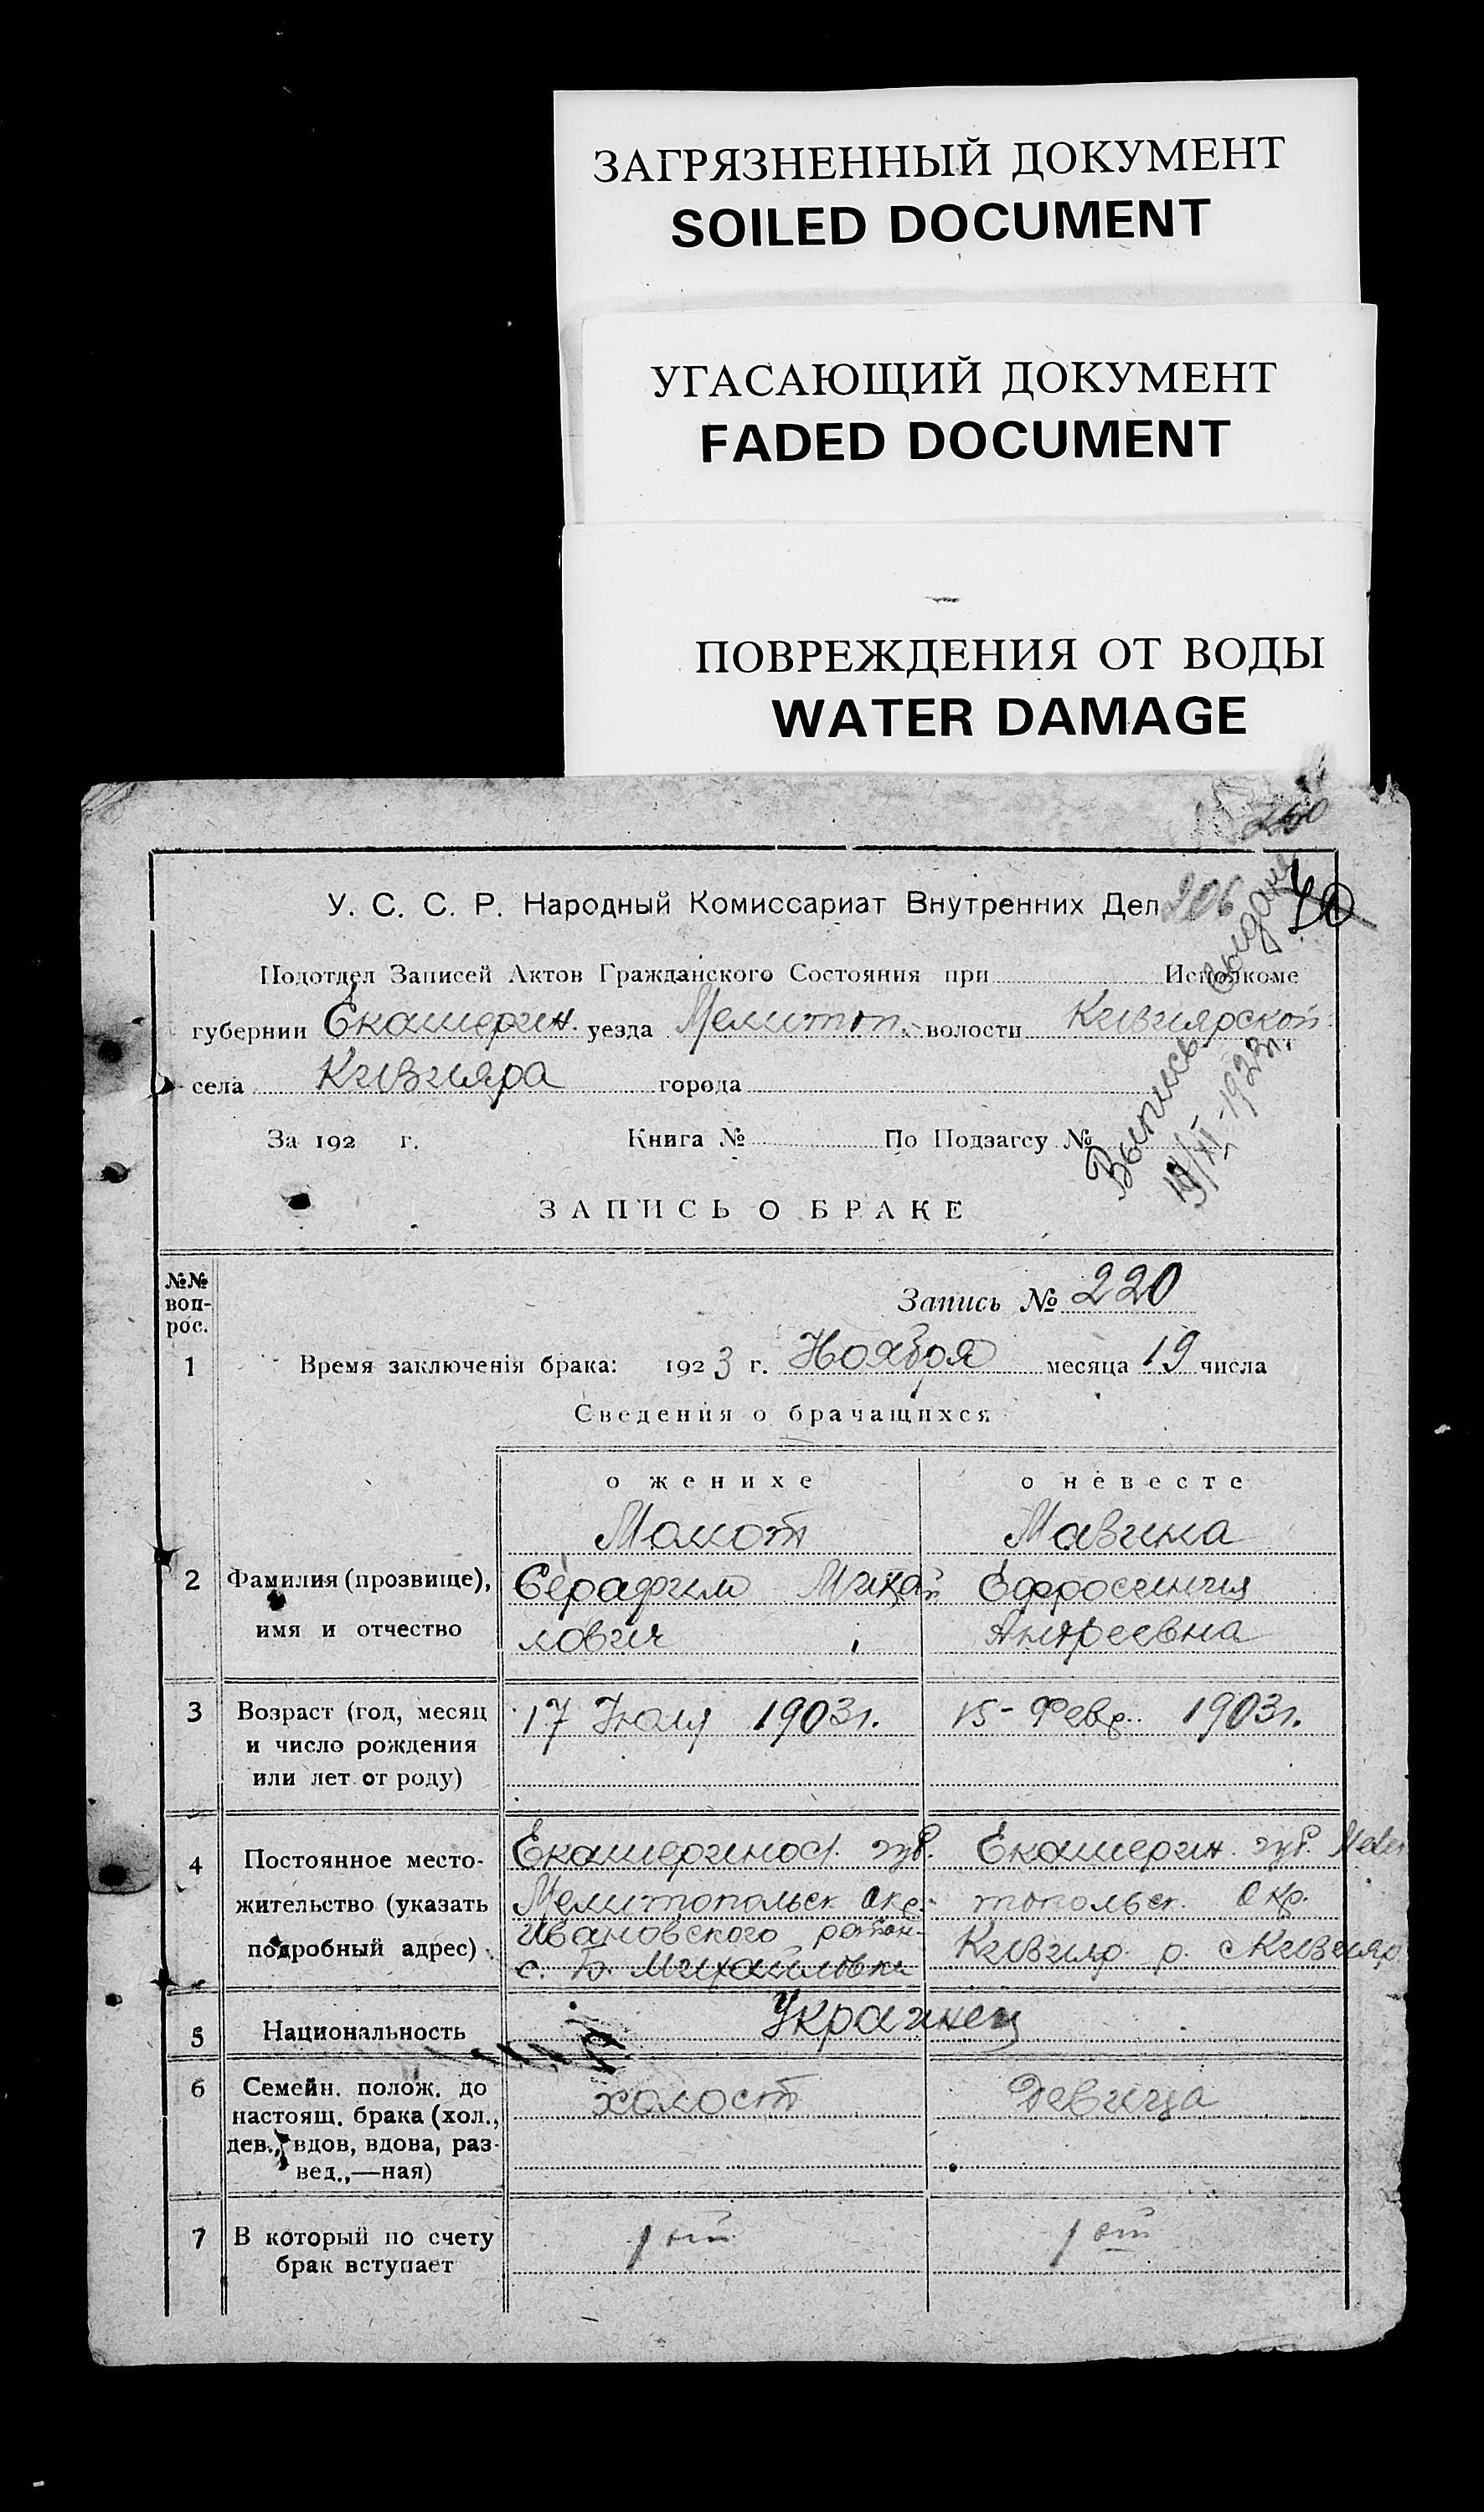 ЗАГРЯЗНЕННЫЙ ДОКУМЕНТ
SOILED DOCUMENT
УГАСАЮЩИЙ ДОКУМЕНТ
FADED DOCUMENT
ПОВРЕЖДЕНИЯ ОТ ВОДЫ
WATER DAMAGE
У. С. С. Р. Народный Комиссариат Внутренних Дел 206
Подотдел Записей Актов Гражданского Состояния при Исполкоме
губернии Екатерин. уезда Мелитоп. волости Кизиярской
села Кизияра города
Выпись выдана
19/XI-1923г.
За 192 г. Книга № По Подзагсу №
ЗАПИСЬ О БРАКЕ
№№ воп-
рос.
Запись № 220
1 Время заключенія брака: 1923 г. Ноября месяца 19 числа
Сведения о брачащихся
о женихе о невесте
Молот Мазина
2 Фамилия (прозвище), Серафим Михай Ефросиния
имя и отчество лович Андреевна
3 Возраст (год, месяц 17 Июля 1903г. 15-Февр. 1903г.
и число рождения
или лет от роду)
4 Постоянное место- Екатеринос. губ. Екатерин. губ. Мели
жительство (указать Мелитопольск. окр. топольск. окр.
Ивановского район.
подробный адрес) с. Б. Михайловка Кизияр. р. с Кизияр
5 Национальность Украинец
6 Семейн. полож. до холост Девица
настоящ. брака (хол.,
дев., вдов, вдова, раз-
вед.,—ная)
7 В который по счету 1 ый 1 ый
брак вступает